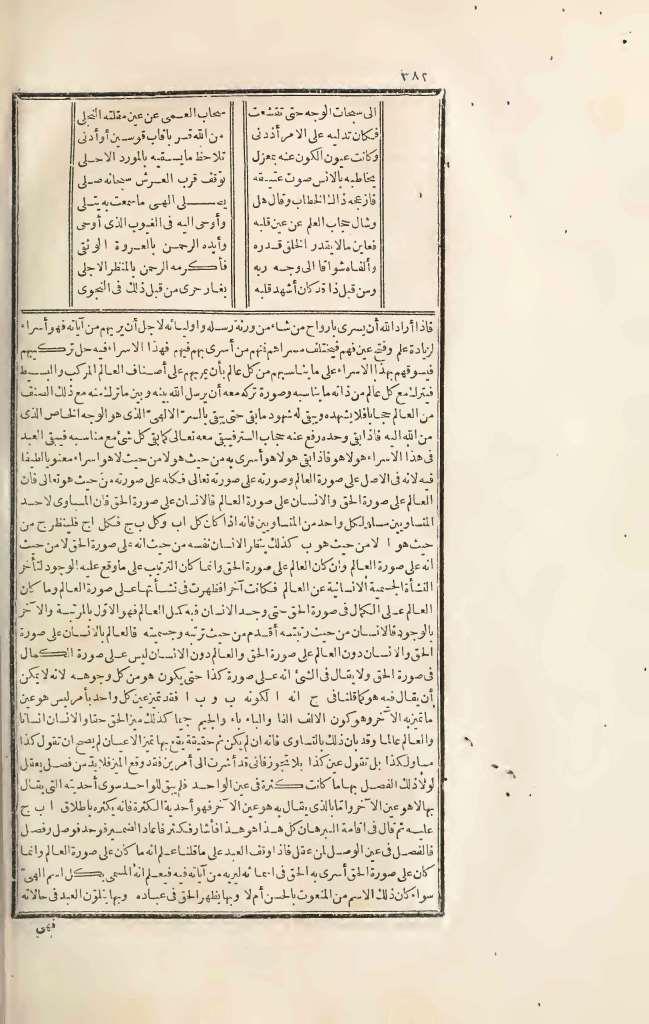 ٣٨٢
الى سبحات الوجه حتى تقشعت سحاب العمى عن عين مقلته النجلى
فكان تدليه على الامر اذ دنى من الله قسر باقاب قوسين أو أدنى
وكانت عيون الكون عنه بمعزل تلاحظ ما يسقيه بالمورد الاحلى
يخاطبه بالانس صوت عتيقه توقف قرب العرش سبحانه صلى
فازعجه ذاك الخطاب وقال هل يصلى الهى ما سمعت به يتلى
وشال حجاب العلم عن عين قلبه وأوحى اليه فى الغيوب الذى أوحى
فعاين مالا يقدر الخلق قدره وأيده الرحمن بالعروة الوثقى
وألفاه شواقا الى وجه ربه فأكرمه الرحمن بالمنظر الاجلى
ومن قبل ذا قد كان أشهد قلبه بغار حرى من قبل ذلك فى النجوى
فاذا أراد الله أن يسرى بارواح من شاء من ورثة رسله وأوليائه لاجل أن يريهم من آياته فهو أسراء
لزيادة علم وفتح عين فهم فيختلف مسراهم فمنهم من أسرى بهم فيهم فهذا الاسراء فيه حل تركيبهم
فيوقفهم بهذا الاسراء على ما يناسبهم من كل عالم بأن يمر بهم على أصناف العالم المركب والبسيط
فيترك مع كل عالم من ذاته ما يناسبه وصورة تركه معه أن يرسل الله بينه وبين ما ترك منه مع ذلك الصنف
من العالم حجابا فلا يشهده ويبقى له شهود ما بقى حتى يبقى بالسر الالهى الذى هو الوجه الخاص الذى
من الله اليه فاذا بقى وحده رفع عنه حجاب الستر فيبقى معه تعالى كما بقى كل شئ مع مناسبه فيبقى العبد
فى هذا الاسراء هو لا هو فاذا بقى هو لا هو أسرى به من حيث هو لا من حيث لا هو اسراء معنويا لطيفا
فيه لانه فى الاصل على صورة العالم وصورته على صورته تعالى فكله على صورته من حيث هو تعالى فان
العالم على صورة الحق والانسان على صورة العالم فالانسان على صورة الحق فان المساوى لاحد
المتساويين مساو لكل واحد من المتساويين فانه اذا كان كل ا ب وكل ب ج فكل ا ج فلينظر ج من
حيث هو ا لا من حيث هو ب كذلك ينظر الانسان نفسه من حيث انه على صورة الحق لا من حيث
انه على صورة العالم وان كان العالم على صورة الحق وانما كان الترتيب على ما وقع عليه الوجود لتأخر
النشأة الجسمية الانسانية عن العالم فكانت آخرا فظهرت فى نشأتها على صورة العالم وما كان
العالم على الكمال فى صورة الحق حتى وجد الانسان فيه كمل العالم فهو الاول بالمرتبة والآخر
بالوجود فالانسان من حيث رتبته أقدم من حيث ترتيبه وجسميته فالعالم بالانسان على صورة
الحق والانسان دون العالم على صورة الحق والعالم دون الانسان ليس على صورة الكمال
فى صورة الحق ولا يقال فى الشئ انه على صورة كذا حتى يكون هو من كل وجوهه لانه لا يمكن
أن يقال فيه هو كما قلنا فى ج انه ا لكونه ب و ب ا فقد تميز عين كل واحد بأمر ليس هو عين
ما تميز به الآخر وهو كون الالف الفا والباء باء والجيم جيما كذلك ميز الحق حقا والانسان انسانا
والعالم عالما وقد بان ذلك بالتساوى فانه ان لم يكن ثم حقيقة يقع بها تميز الاعيان لم يصح ان تقول كذا
مساو لكذا بل تقول عين كذا بلا تجوز فانى قد أشرت الى أمرين فقد وقع الميز فلا بد من فصل يعقل
لولا ذلك الفصل بها ما كانت كثرة فى عين الواحد فلم يبق للواحد سوى أحديته التى يقال
بها لا هو عين الآخر واما بالذى يقال به هو عين الآخر فهو أحدية الكثرة فانه يكثره باطلاق ا ب ج
عليه ثم قال فى اقامة البرهان كل هذا هو هذا فأشار فكثر فاعاد الضمير فوحد فوصل وفصل
فالفصل فى عين الوصل لمن عقل فاذا وقف العبد على ما قلنا علم انه ما كان على صورة العالم وانما
كان على صورة الحق أسرى به الحق فى اسمائه ليريه من آياته فيه فيعلم انه المسمى بكل اسم الهى
سواء كان ذلك الاسم من المنعوت بالحسن أم لا وبها يظهر الحق فى عباده وبها يتلون العبد فى حالاته
فهى